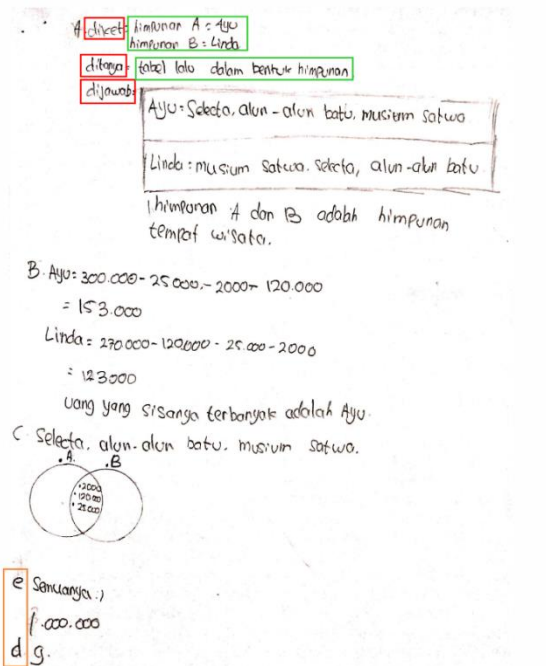 A diket: himpunan A = Ayu
himpunan B = Linda
ditanya: tabel lalu dalam bentuk himpunan
dijawab:
Ayu: Selecta, alun-alun batu, musium satwa
Linda: musium satwa. selecta, alun-alun batu
himpunan A dan B adalah himpunan
tempat wisata.
B. Ayu: 300.000 - 25000,- 2000 - 120.000
= 153.000
Linda = 270.000 - 120.000 - 25.000 - 2000
= 123000
Uang yang sisanya terbanyak adalah Ayu.
C. Selecta, alun-alun batu, musium satwa.
.A. .B
•2000
•120.000
•25.000
e semuanya :)
1.000.000
d g.